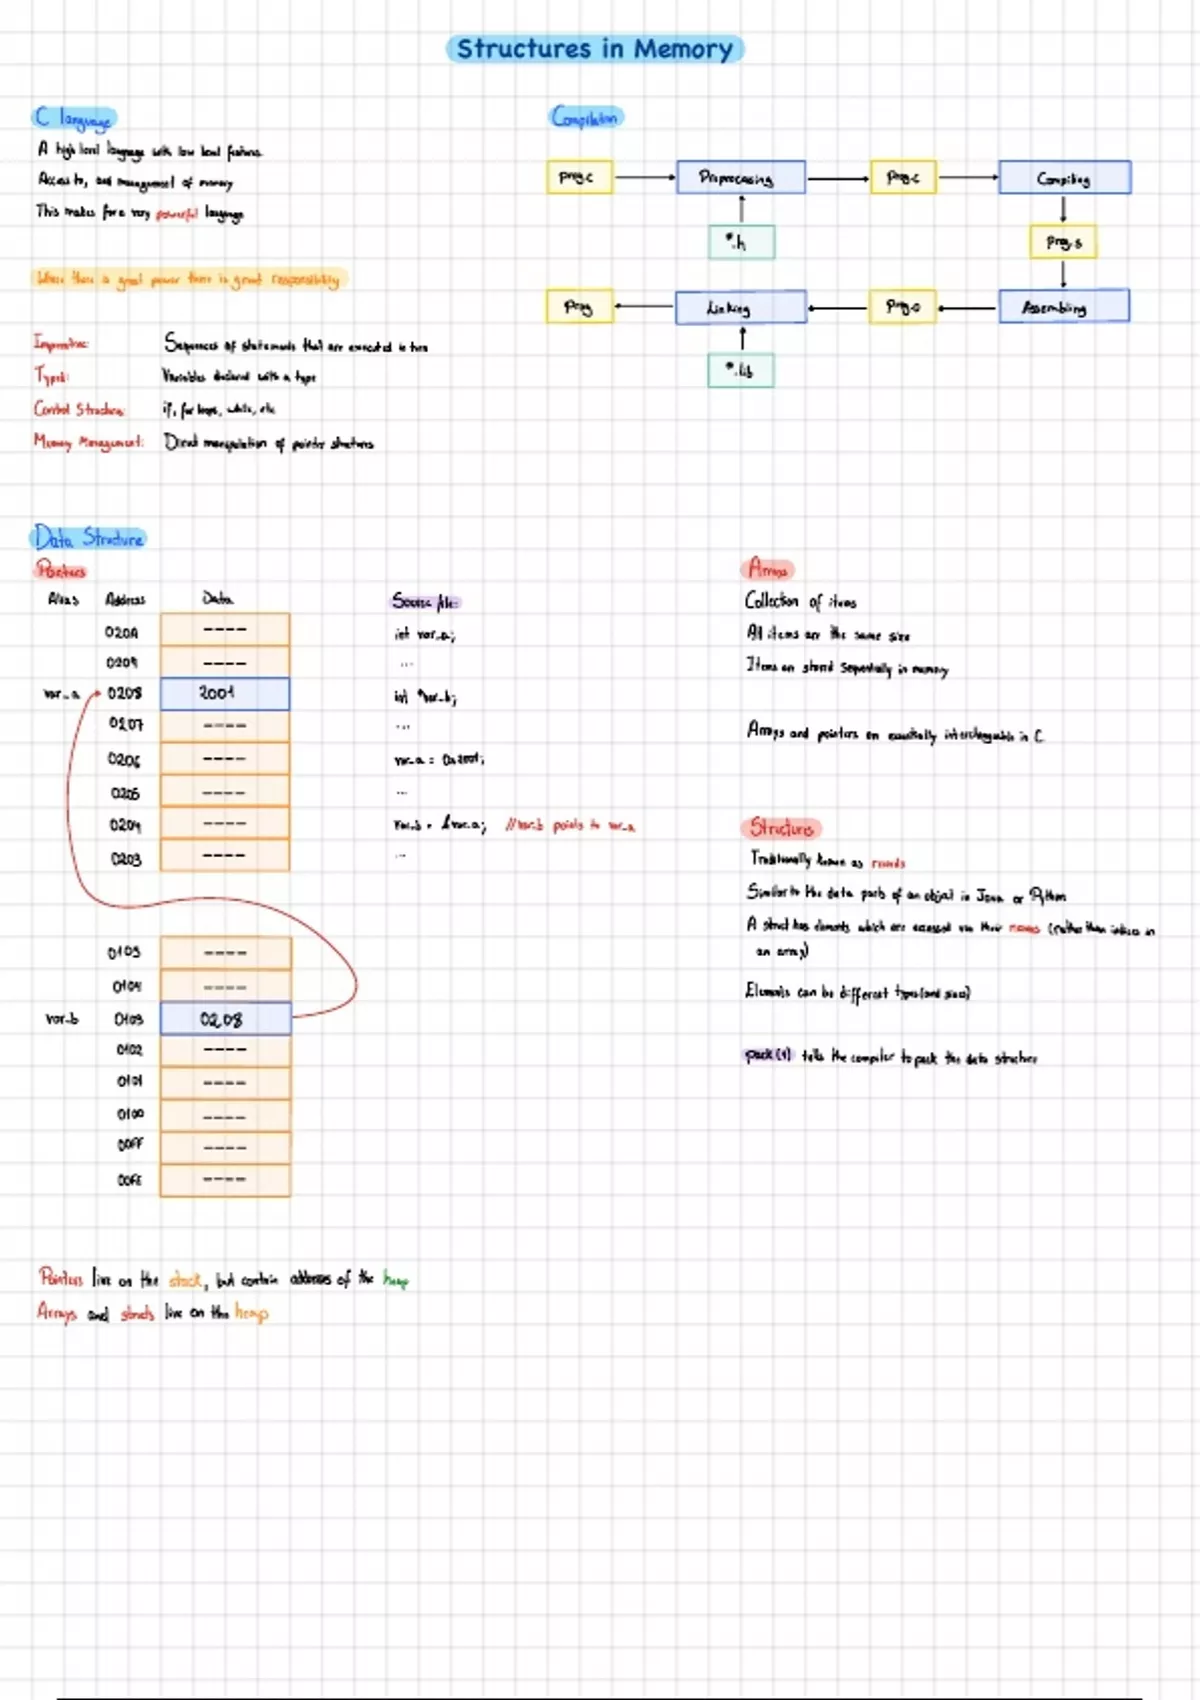 Structures in Memory
C language
A high level language with low level features
Access to, and management of memory
This makes for a very powerful language
Where there is great power there is great responsibility
Imperative: Sequences of statements that are executed in turn
Typed: Variables declared with a type
Control Structure: if, for loops, while, etc
Memory Management: Direct manipulation of pointer structures
Compilation
prog.c
Preprocessing
Prog.c
Compiling
*.h
prog.s
Prog
Linking
Prog.o
Assembling
*.lib
Data Structure
Pointers
Alias Address Data
020A ----
0209 ----
var_a 0208 2001
0207 ----
0206 ----
0205 ----
0204 ----
0203 ----
0105 ----
0104 ----
var_b 0103 0208
0102 ----
0101 ----
0100 ----
00FF ----
00FE ----
Source file:
int var_a;
...
int *var_b;
...
var_a = 0x2001;
...
var_b = &var_a; //var_b points to var_a
...
Arrays
Collection of items
All items are the same size
Items are stored sequentially in memory
Arrays and pointers are essentially interchangeable in C
Structures
Traditionally known as records
Similar to the data parts of an object in Java or Python
A struct has elements which are accessed via their names (rather than indices in
an array)
Elements can be different types (and sizes)
pack(1) tells the compiler to pack the data structure
Pointers live on the stack, but contain addresses of the heap
Arrays and structs live on the heap